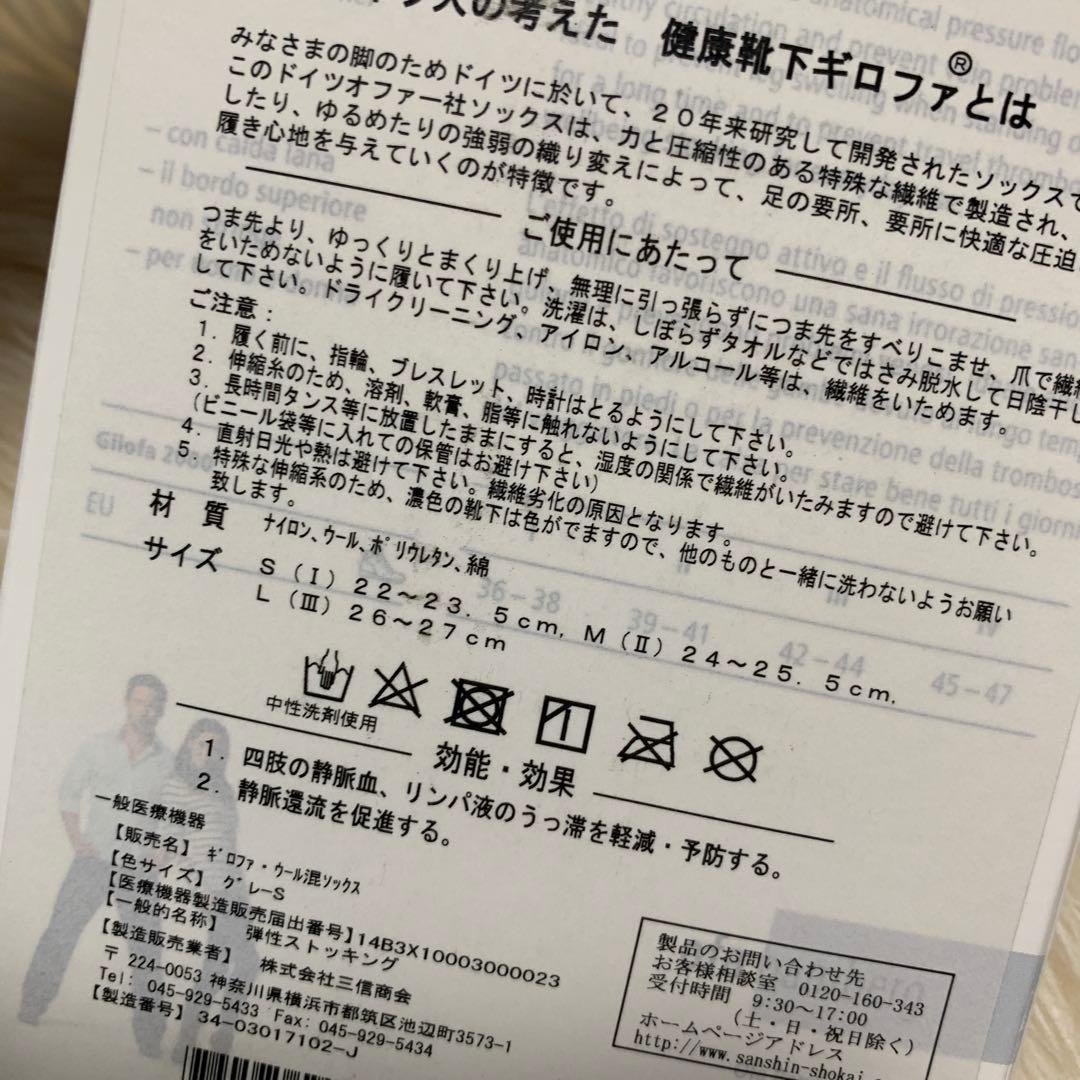 人の考えた 健康靴下ギロファ®とは
みなさまの脚のためドイツに於いて、20年来研究して開発されたソックスで
このドイツオファー社ソックスは、力と圧縮性のある特殊な繊維で製造され、
したり、ゆるめたりの強弱の織り変えによって、足の要所、要所に快適な圧迫
履き心地を与えていくのが特徴です。
ご使用にあたって
つま先より、ゆっくりとまくり上げ、無理に引っ張らずにつま先をすべりこませ、爪で繊維
をいためないように履いて下さい。洗濯は、しぼらずタオルなどではさみ脱水して日陰干し
して下さい。ドライクリーニング、アイロン、アルコール等は、繊維をいためます。
ご注意:
1. 履く前に、指輪、ブレスレット、時計はとるようにして下さい。
2. 伸縮糸のため、溶剤、軟膏、脂等に触れないようにして下さい。
3. 長時間タンス等に放置したままにすると、湿度の関係で繊維がいたみますので避けて下さい。
(ビニール袋等に入れての保管はお避け下さい)
4. 直射日光や熱は避けて下さい。繊維劣化の原因となります。
5. 特殊な伸縮系のため、濃色の靴下は色がでますので、他のものと一緒に洗わないようお願い
致します。
材 質 ナイロン、ウール、ポリウレタン、綿
サイズ S(Ⅰ)22~23.5cm, M(Ⅱ)24~25.5cm,
L(Ⅲ)26~27cm
中性洗剤使用
効能・効果
1. 四肢の静脈血、リンパ液のうっ滞を軽減・予防する。
2. 静脈還流を促進する。
一般医療機器
【販売名】 ギロファ・ウール混ソックス
【色サイズ】 グレーS
【医療機器製造販売届出番号】14B3X10003000023
【一般的名称】 弾性ストッキング
【製造販売業者】 株式会社三信商会
〒224-0053 神奈川県横浜市都筑区池辺町3573-1
Tel: 045-929-5433 Fax: 045-929-5434
【製造番号】 34-03017102-J
製品のお問い合わせ先
お客様相談室 0120-160-343
受付時間 9:30~17:00
(土・日・祝日除く)
ホームページアドレス
http://www.sanshin-shokai
- con calda lana
- il bordo superiore
non
- per
Gilofa 2000
EU 36-38 39-41 42-44 45-47